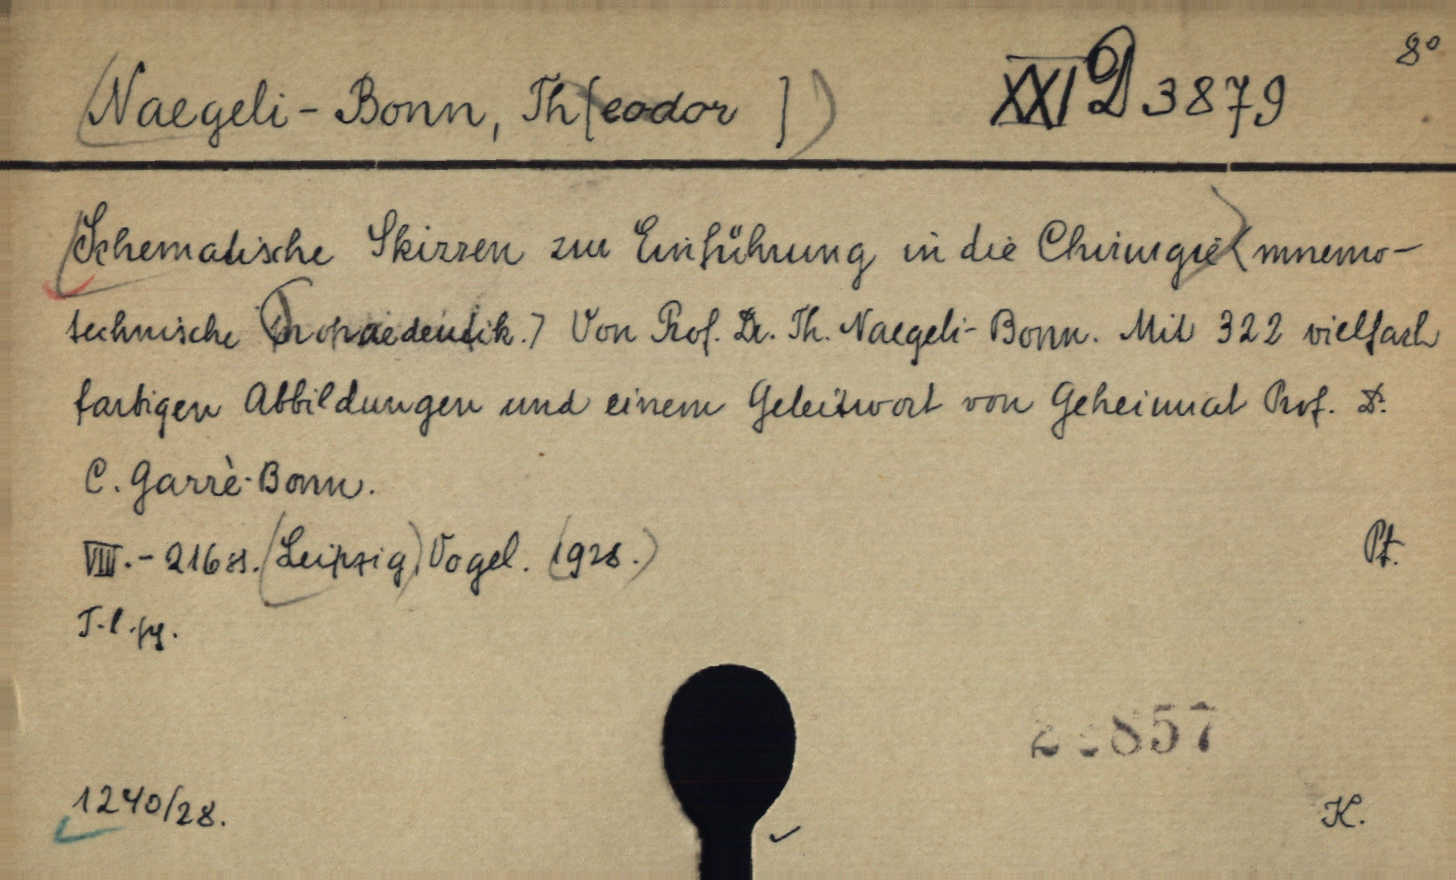 8°
Naegeli-Bonn, Th[eodor ] XXI D 3879
Schematische Skizzen zur Einführung in die Chirurgie (mnemo-
technische Propaedeutik.) Von Prof. Dr. Th. Naegeli-Bonn. Mit 322 vielfach
farbigen Abbildungen und einem Geleitwort von Geheimrat Prof. Dr.
C. Garrè-Bonn.
VIII.-216 S. (Leipzig) Vogel. (1928.) Pf.
1240/28.
K.